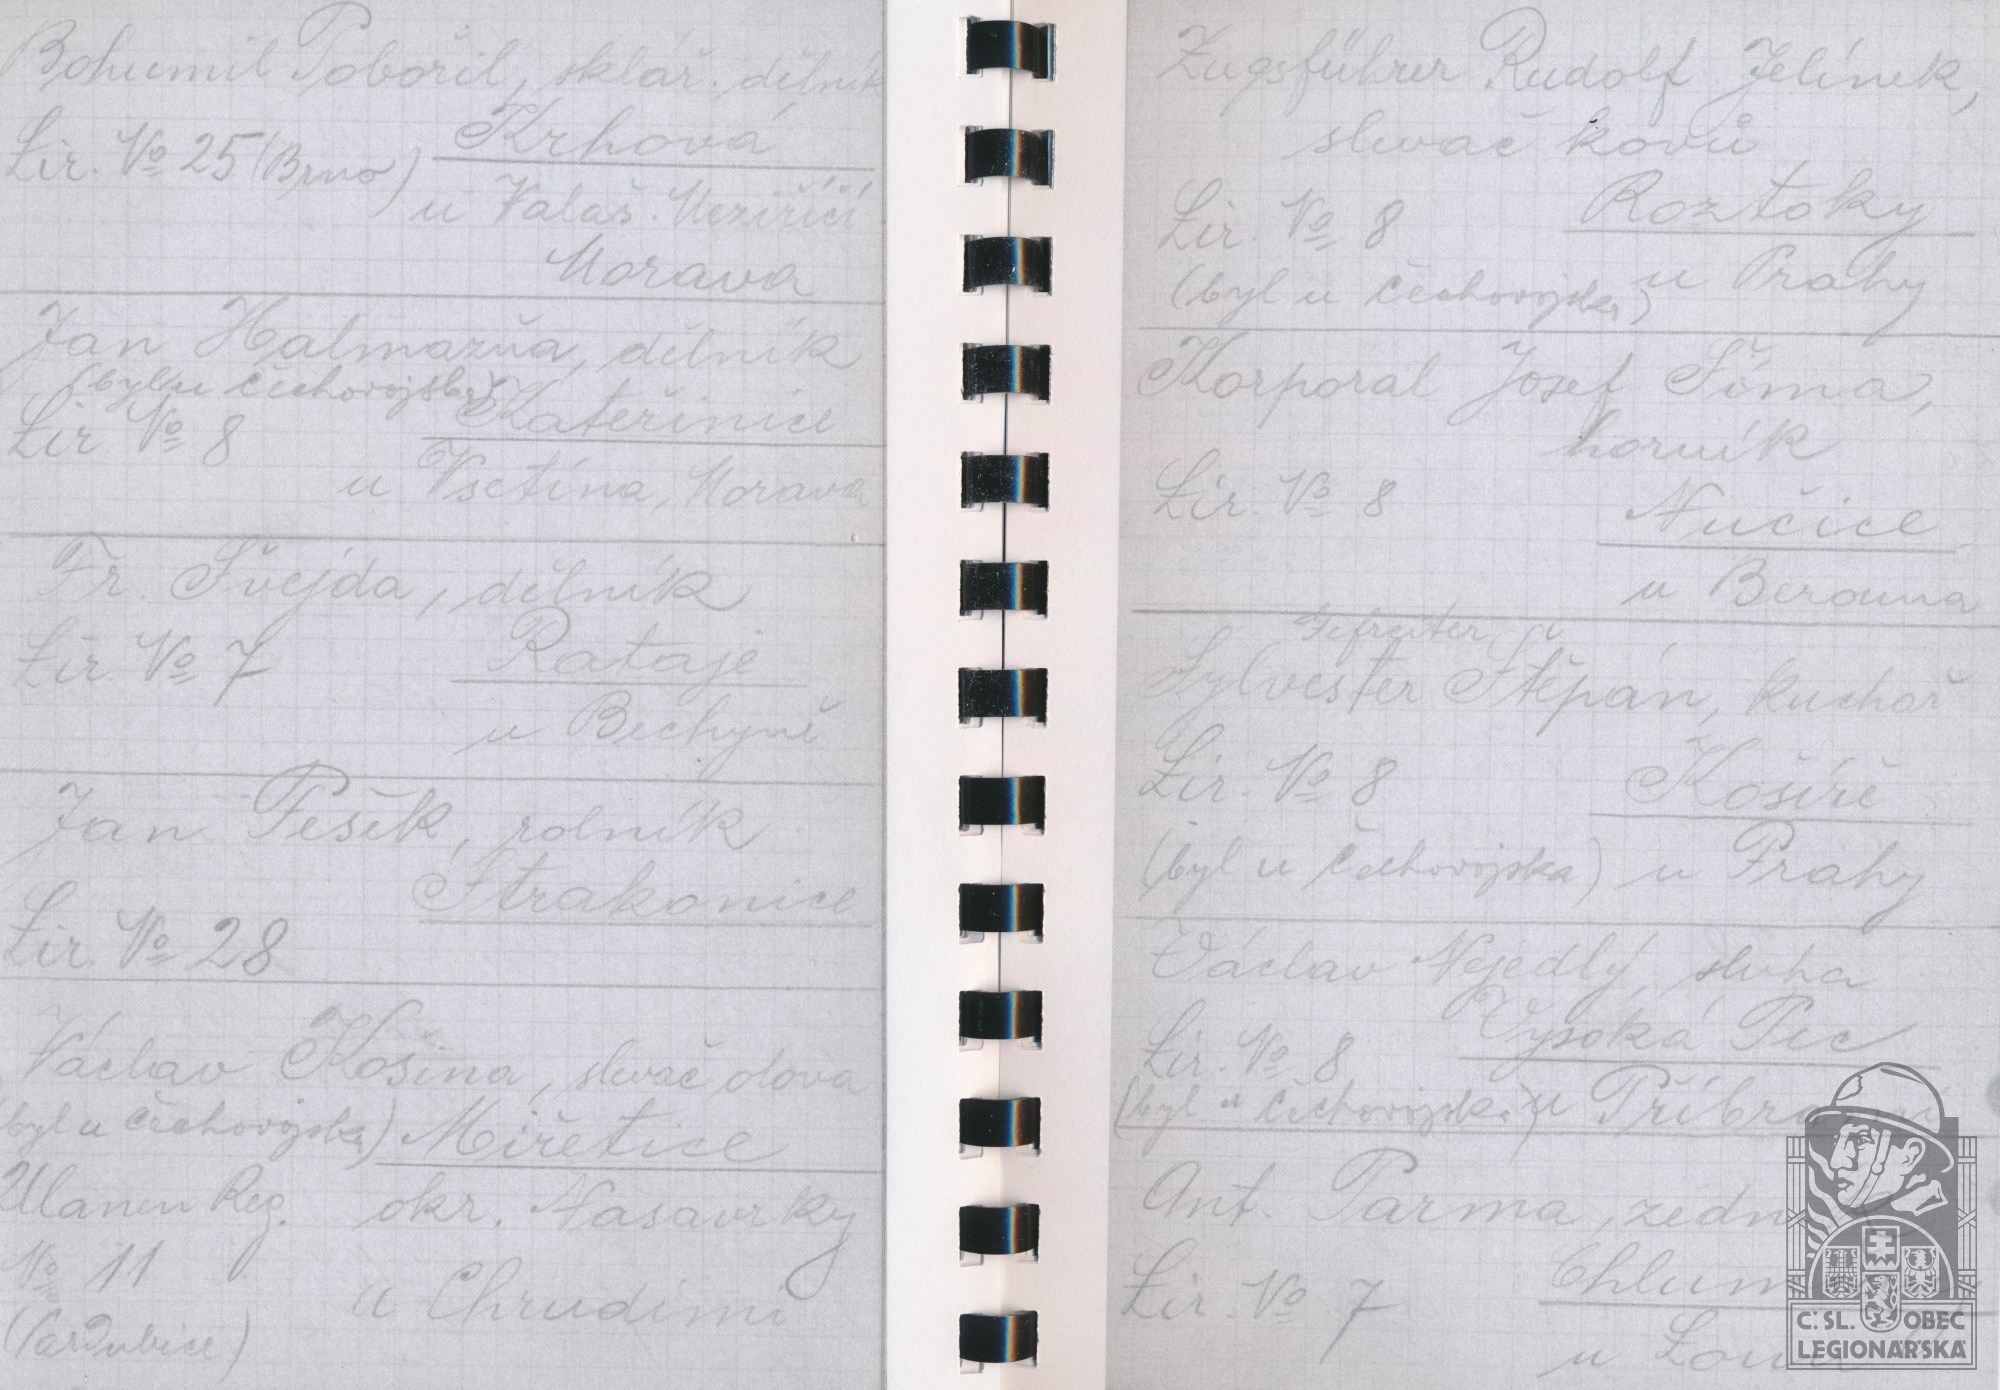 Bohumil Pobořil, sklář. dělník
Lir. No 25 (Brno) Krhová
u Valaš. Meziříčí
Morava
Jan Halmazňa, dělník
(byl u čechovojska)
Lir No 8 Kateřinice
u Vsetína, Morava
Fr. Švejda, dělník
Lir. No 7 Rataje
u Bechyně
Jan Pešek, rolník
Strakonice
Lir. No 28
Václav Košina, slevač olova
(byl u čechovojska) Miřetice
Ulanen Reg. okr. Nasavrky
No 11
u Chrudimi
(Pardubice)
Zugsführer Rudolf Jelínek,
slevač kovů
Lir. No 8 Roztoky
(byl u čechovojska) u Prahy
Korporal Josef Šíma,
horník
Lir. No 8 Nučice
u Berouna
Gefreiter
Sylvester Štěpán, kuchař
Lir. No 8 Košíře
(byl u čechovojska) u Prahy
Václav Nejedlý, sluha
Lir. No 8 Vysoká Pec
(byl u čechovojska) u
Ant. Parma,
Lir. No 7
u
Č. SL. OBEC
LEGIONÁŘSKÁ